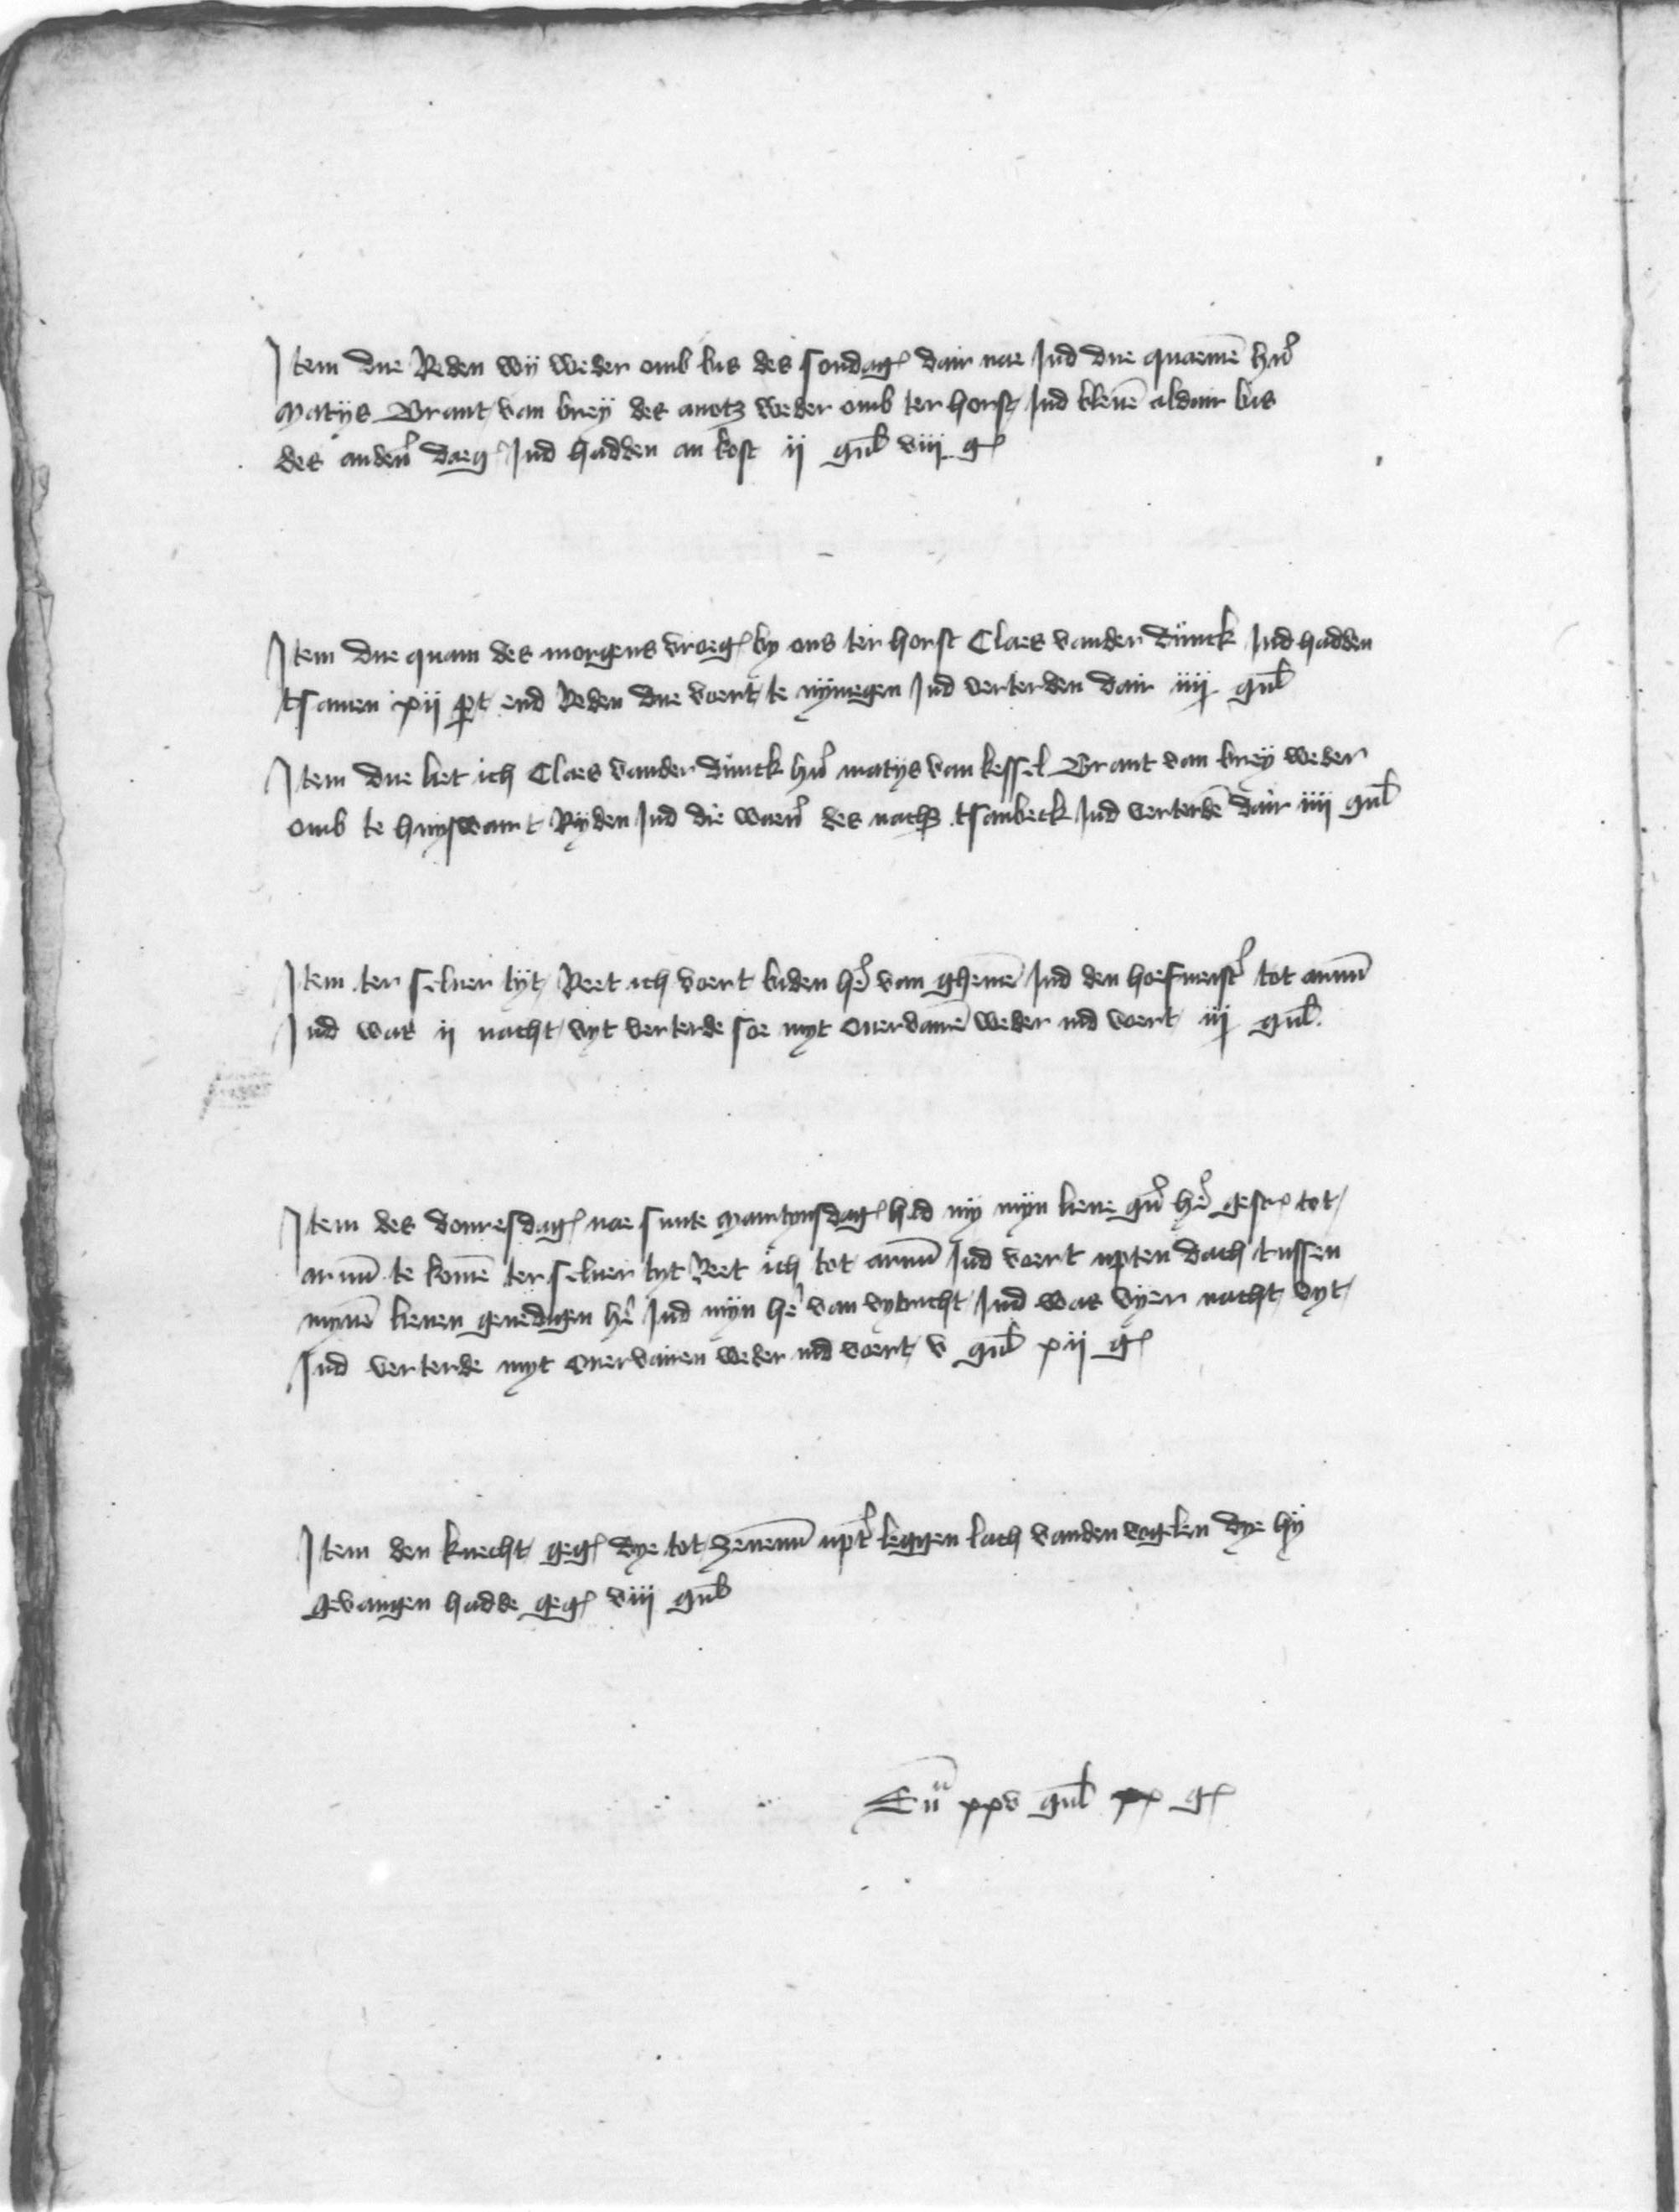 Item due Reden wij weder omb bis des sondag dair nae Ind due quaeme her
Matijs Brant van breij des anotz weder omb ter horst Ind bleue aldair bis
des ander daeg Ind hadden an kost ij gul viij g
Item due quam des morgens vroeg by ons ter horst Claes vander Dunck Ind hadden
tsamen xij pert end Reden due voert te nijmegen Ind verterden dair iiij gul
Item due liet ich Claes vander Dunck her matijs van kessel Brant van breij weder
omb te huyswart Rijden Ind die waer des nachtz tsanbeck Ind verterde dair iiij gul
Item ter seluer tijt Reet ich voert biden her van gheme Ind den hoefmeist tot arnm
Ind was ij nacht vyt verterde soe myt ouervaire weder ind voert iij gul
Item des donresdag nae sunte Martynsdag hed mij mijn lieue gn her gescr tot
arnm te kome ter seluer tyt Reet ich tot arnm Ind voert upten dach tussen
myne lieuen genedigen her Ind mijn her van vytricht Ind was vyer nacht vyt
Ind verterde myt ouervairen weder ind voert v gul xij g
Item den knecht geg dye tot zeuenm upt leggen lach vanden vogelen dye hij
gevangen hadde geg viij gul
Sum xxv gul xx g